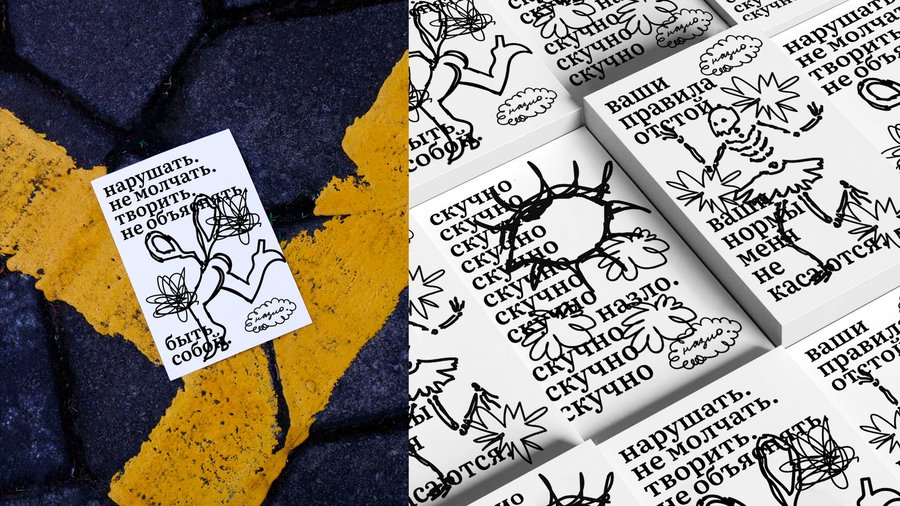 нарушать.
не молчать.
творить.
не объяснять
быть
собой.
назло
быть
собой.
назло
скучно
скучно
скучно
скучно
назло
скучно
ваши
правила
отстой
ваши
нормы
меня
не
касаются
нарушать.
не молчать.
творить.
не объяснять
скучно
скучно
скучно
скучно
скучно
скучно
скучно назло.
скучно
скучно
скучно
назло
касаются
ваши
правила
отстой
нарушать.
не молчать.
творить.
не объяснять
скучно